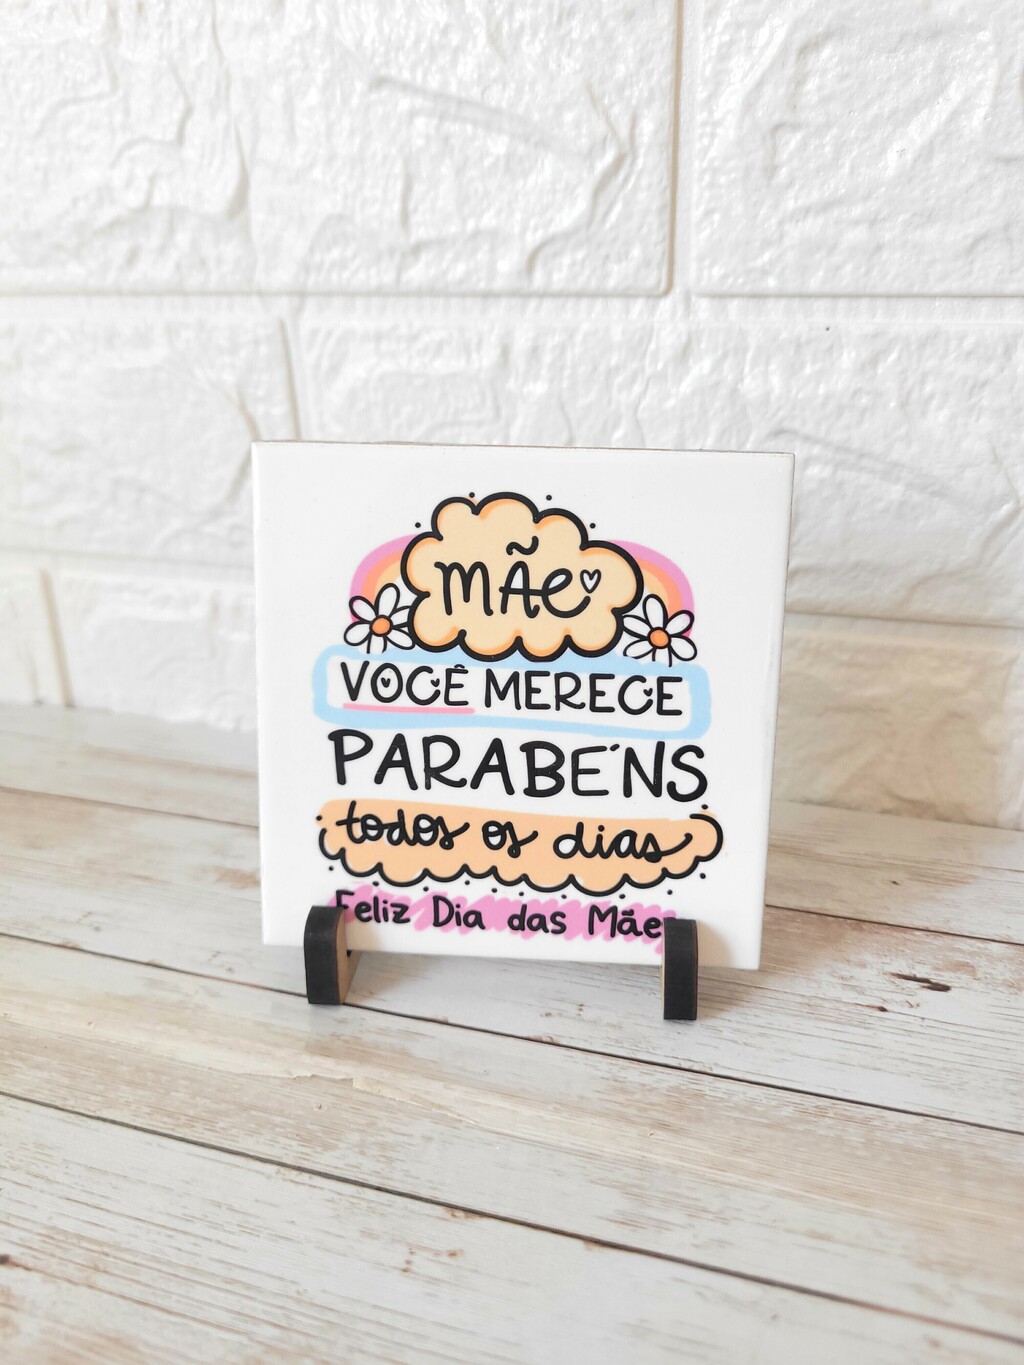 MÃe
VOCÊ MERECE
PARABÉNS
todos os dias
Feliz Dia das Mães